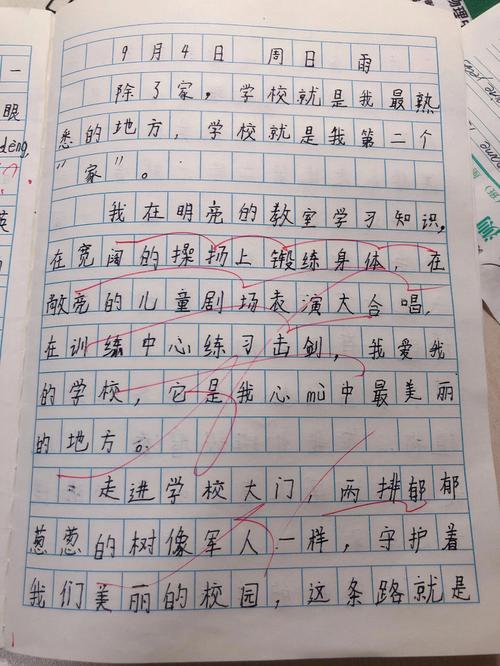 9月4日 周日 雨
除了家，学校就是我最熟
悉的地方，学校就是我第二个
“家”。
我在明亮的教室学习知识，
在宽阔的操场上锻练身体，在
敞亮的儿童剧场表演大合唱，
在训练中心练习击剑，我爱我
的学校，它是我心mù中最美丽
的地方。
走进学校大门，两排郁郁
葱葱的树像军人一样，守护着
我们美丽的校园，这条路就是
一
眼
deng,
英